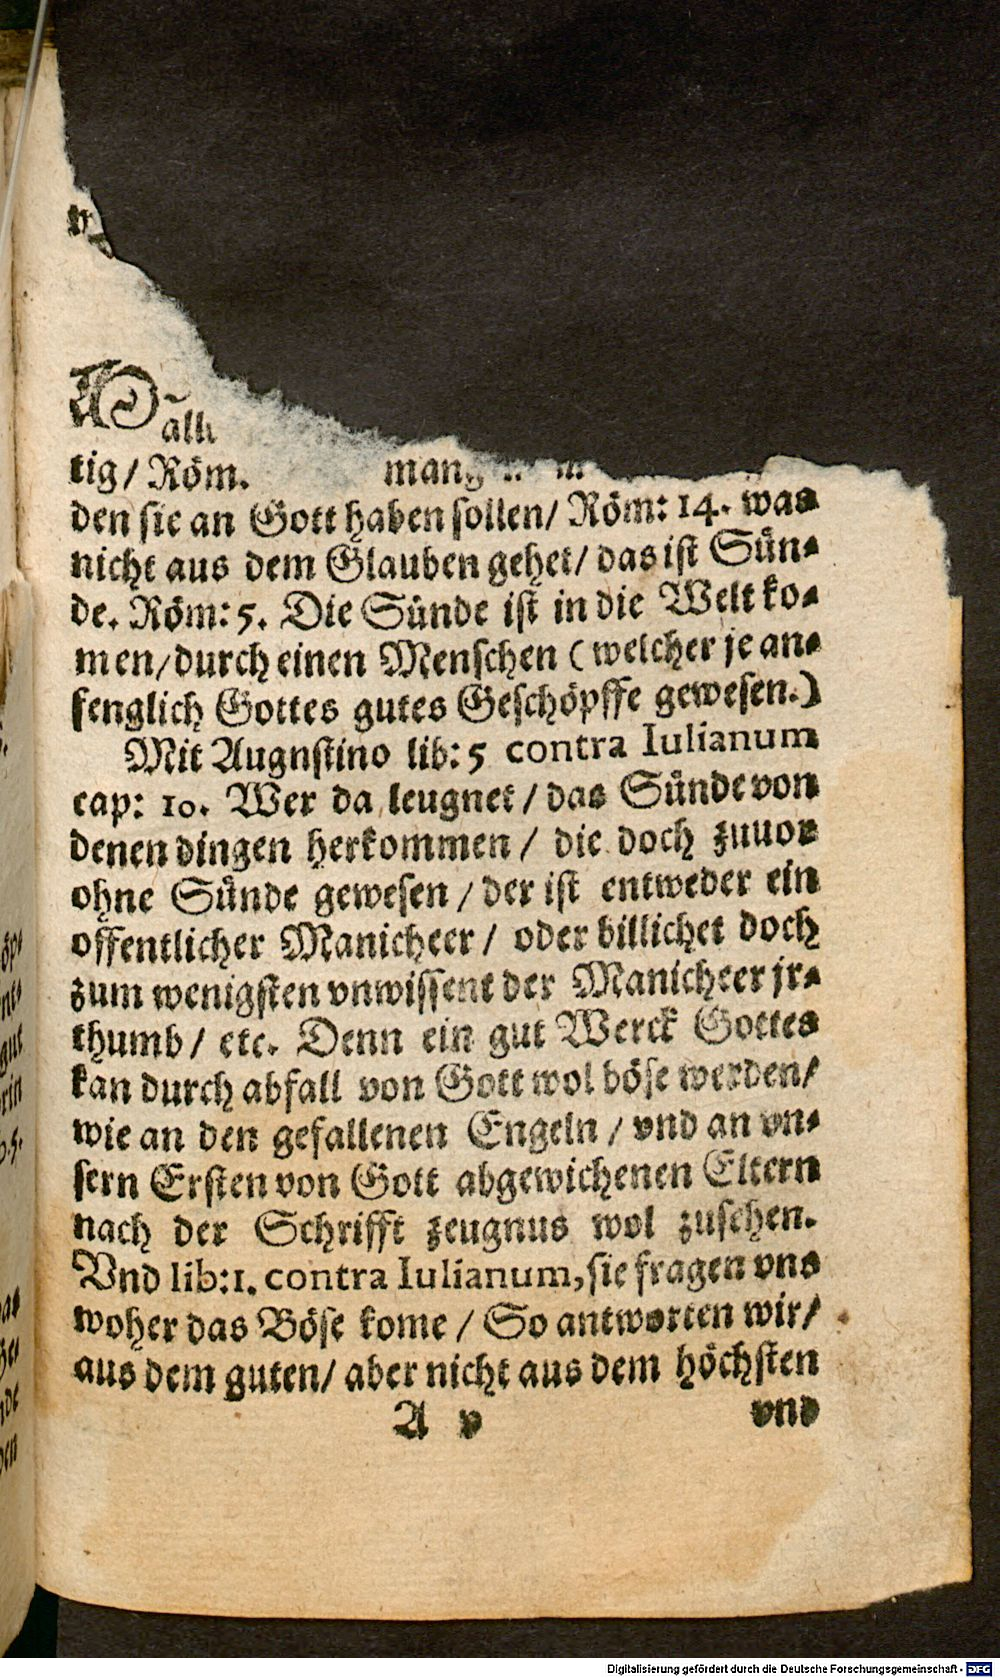 tig/ Röm.
den sie an Gott haben sollen/ Röm: 14. was
nicht aus dem Glauben gehet/ das ist Sün-
de. Röm: 5. Die Sünde ist in die Welt ko-
men/durch einen Menschen (welcher je an-
fenglich Gottes gutes Geschöpffe gewesen.)
Mit Augnstino lib: 5 contra Iulianum
cap: 10. Wer da leugnet/ das Sünde von
denen dingen herkommen/ die doch zuuor
ohne Sünde gewesen/ der ist entweder ein
offentlicher Manicheer/ oder billichet doch
zum wenigsten vnwissent der Manicheer jr-
thumb/ etc. Denn ein gut Werck Gottes
kan durch abfall von Gott wol böse werden/
wie an den gefallenen Engeln/ vnd an vn-
sern Ersten von Gott abgewichenen Eltern
nach der Schrifft zeugnus wol zusehen.
Vnd lib:1. contra Iulianum, sie fragen vns
woher das Böse kome/ So antworten wir/
aus dem guten/ aber nicht aus dem höchsten
A v vnd
Digitalisierung gefördert durch die Deutsche Forschungsgemeinschaft - DFG